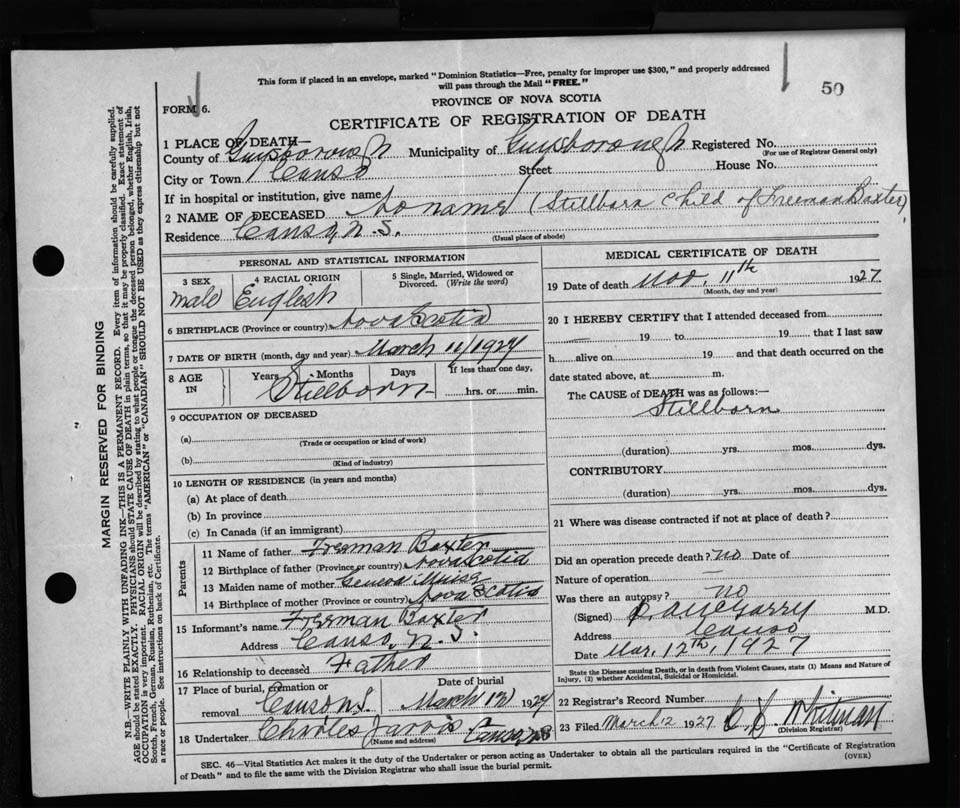 This form if placed in an envelope, marked "Dominion Statistics—Free, penalty for improper use $300," and properly addressed
will pass through the Mail "FREE."
50
FORM 6.
PROVINCE OF NOVA SCOTIA
CERTIFICATE OF REGISTRATION OF DEATH
1 PLACE OF DEATH—
County of Guysborough Municipality of Guysborough Registered No.
(For use of Registrar General only)
City or Town Canso Street House No.
If in hospital or institution, give name
2 NAME OF DECEASED No name (Stillborn Child of Freeman Baxter)
Residence Canso, N.S.
(Usual place of abode)
PERSONAL AND STATISTICAL INFORMATION
3 SEX male
4 RACIAL ORIGIN English
5 Single, Married, Widowed or
Divorced. (Write the word)
6 BIRTHPLACE (Province or country) Nova Scotia
7 DATE OF BIRTH (month, day and year) March 11/1927
8 AGE IN Years Months Days If less than one day,
Stillborn hrs. or min.
9 OCCUPATION OF DECEASED
(a)
(Trade or occupation or kind of work)
(b)
(Kind of industry)
10 LENGTH OF RESIDENCE (in years and months)
(a) At place of death
(b) In province
(c) In Canada (if an immigrant)
Parents
11 Name of father Freeman Baxter
12 Birthplace of father (Province or country) Nova Scotia
13 Maiden name of mother
14 Birthplace of mother (Province or country) Nova Scotia
15 Informant's name Freeman Baxter
Address Canso, N.S.
16 Relationship to deceased Father
17 Place of burial, cremation or Date of burial
removal Canso N.S. March 12 1927
18 Undertaker Charles Jarvis Canso, N.S.
(Name and address)
MEDICAL CERTIFICATE OF DEATH
19 Date of death 11th 1927
(Month, day and year)
20 I HEREBY CERTIFY that I attended deceased from
— 19 to 19 that I last saw
h alive on 19 and that death occurred on the
date stated above, at m.
The CAUSE of DEATH was as follows:—
Stillborn
(duration) yrs. mos. dys.
CONTRIBUTORY
(duration) yrs. mos. dys.
21 Where was disease contracted if not at place of death?
Did an operation precede death? No Date of
Nature of operation —
Was there an autopsy? No
(Signed) M.D.
Address Canso
Date Mar. 12th, 1927
State the Disease causing Death, or in death from Violent Causes, state (1) Means and Nature of
Injury, (2) whether Accidental, Suicidal or Homicidal.
22 Registrar's Record Number
23 Filed March 12 1927 Whitman
(Division Registrar)
SEC. 46—Vital Statistics Act makes it the duty of the Undertaker or person acting as Undertaker to obtain all the particulars required in the "Certificate of Registration
of Death" and to file the same with the Division Registrar who shall issue the burial permit.
(OVER)
MARGIN RESERVED FOR BINDING
N.B.—WRITE PLAINLY WITH UNFADING INK—THIS IS A PERMANENT RECORD. Every item of information should be carefully supplied.
AGE should be stated EXACTLY. PHYSICIANS should STATE CAUSE OF DEATH in plain terms, so that it may be properly classified. Exact statement of
OCCUPATION is very important. RACIAL ORIGIN will be described by stating to what people or tongue the deceased person belonged, whether English, Irish,
Scotch, French, German, Russian, Ruthenian, etc. The terms "AMERICAN" or "CANADIAN" SHOULD NOT BE USED as they express citizenship but not
a race or people. See instructions on back of Certificate.